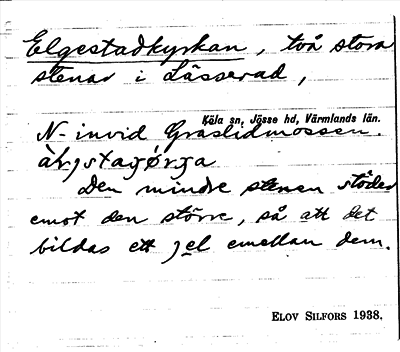 Elgestadkyrkan, två stora
stenar i Lässerad,
Köla sn, Jösse hd, Värmlands län.
N- invid Graslidmossen.
Den mindre stenen stöder
emot den större, så att det
bildas ett jel emellan dem.
ELOV SILFORS 1938.